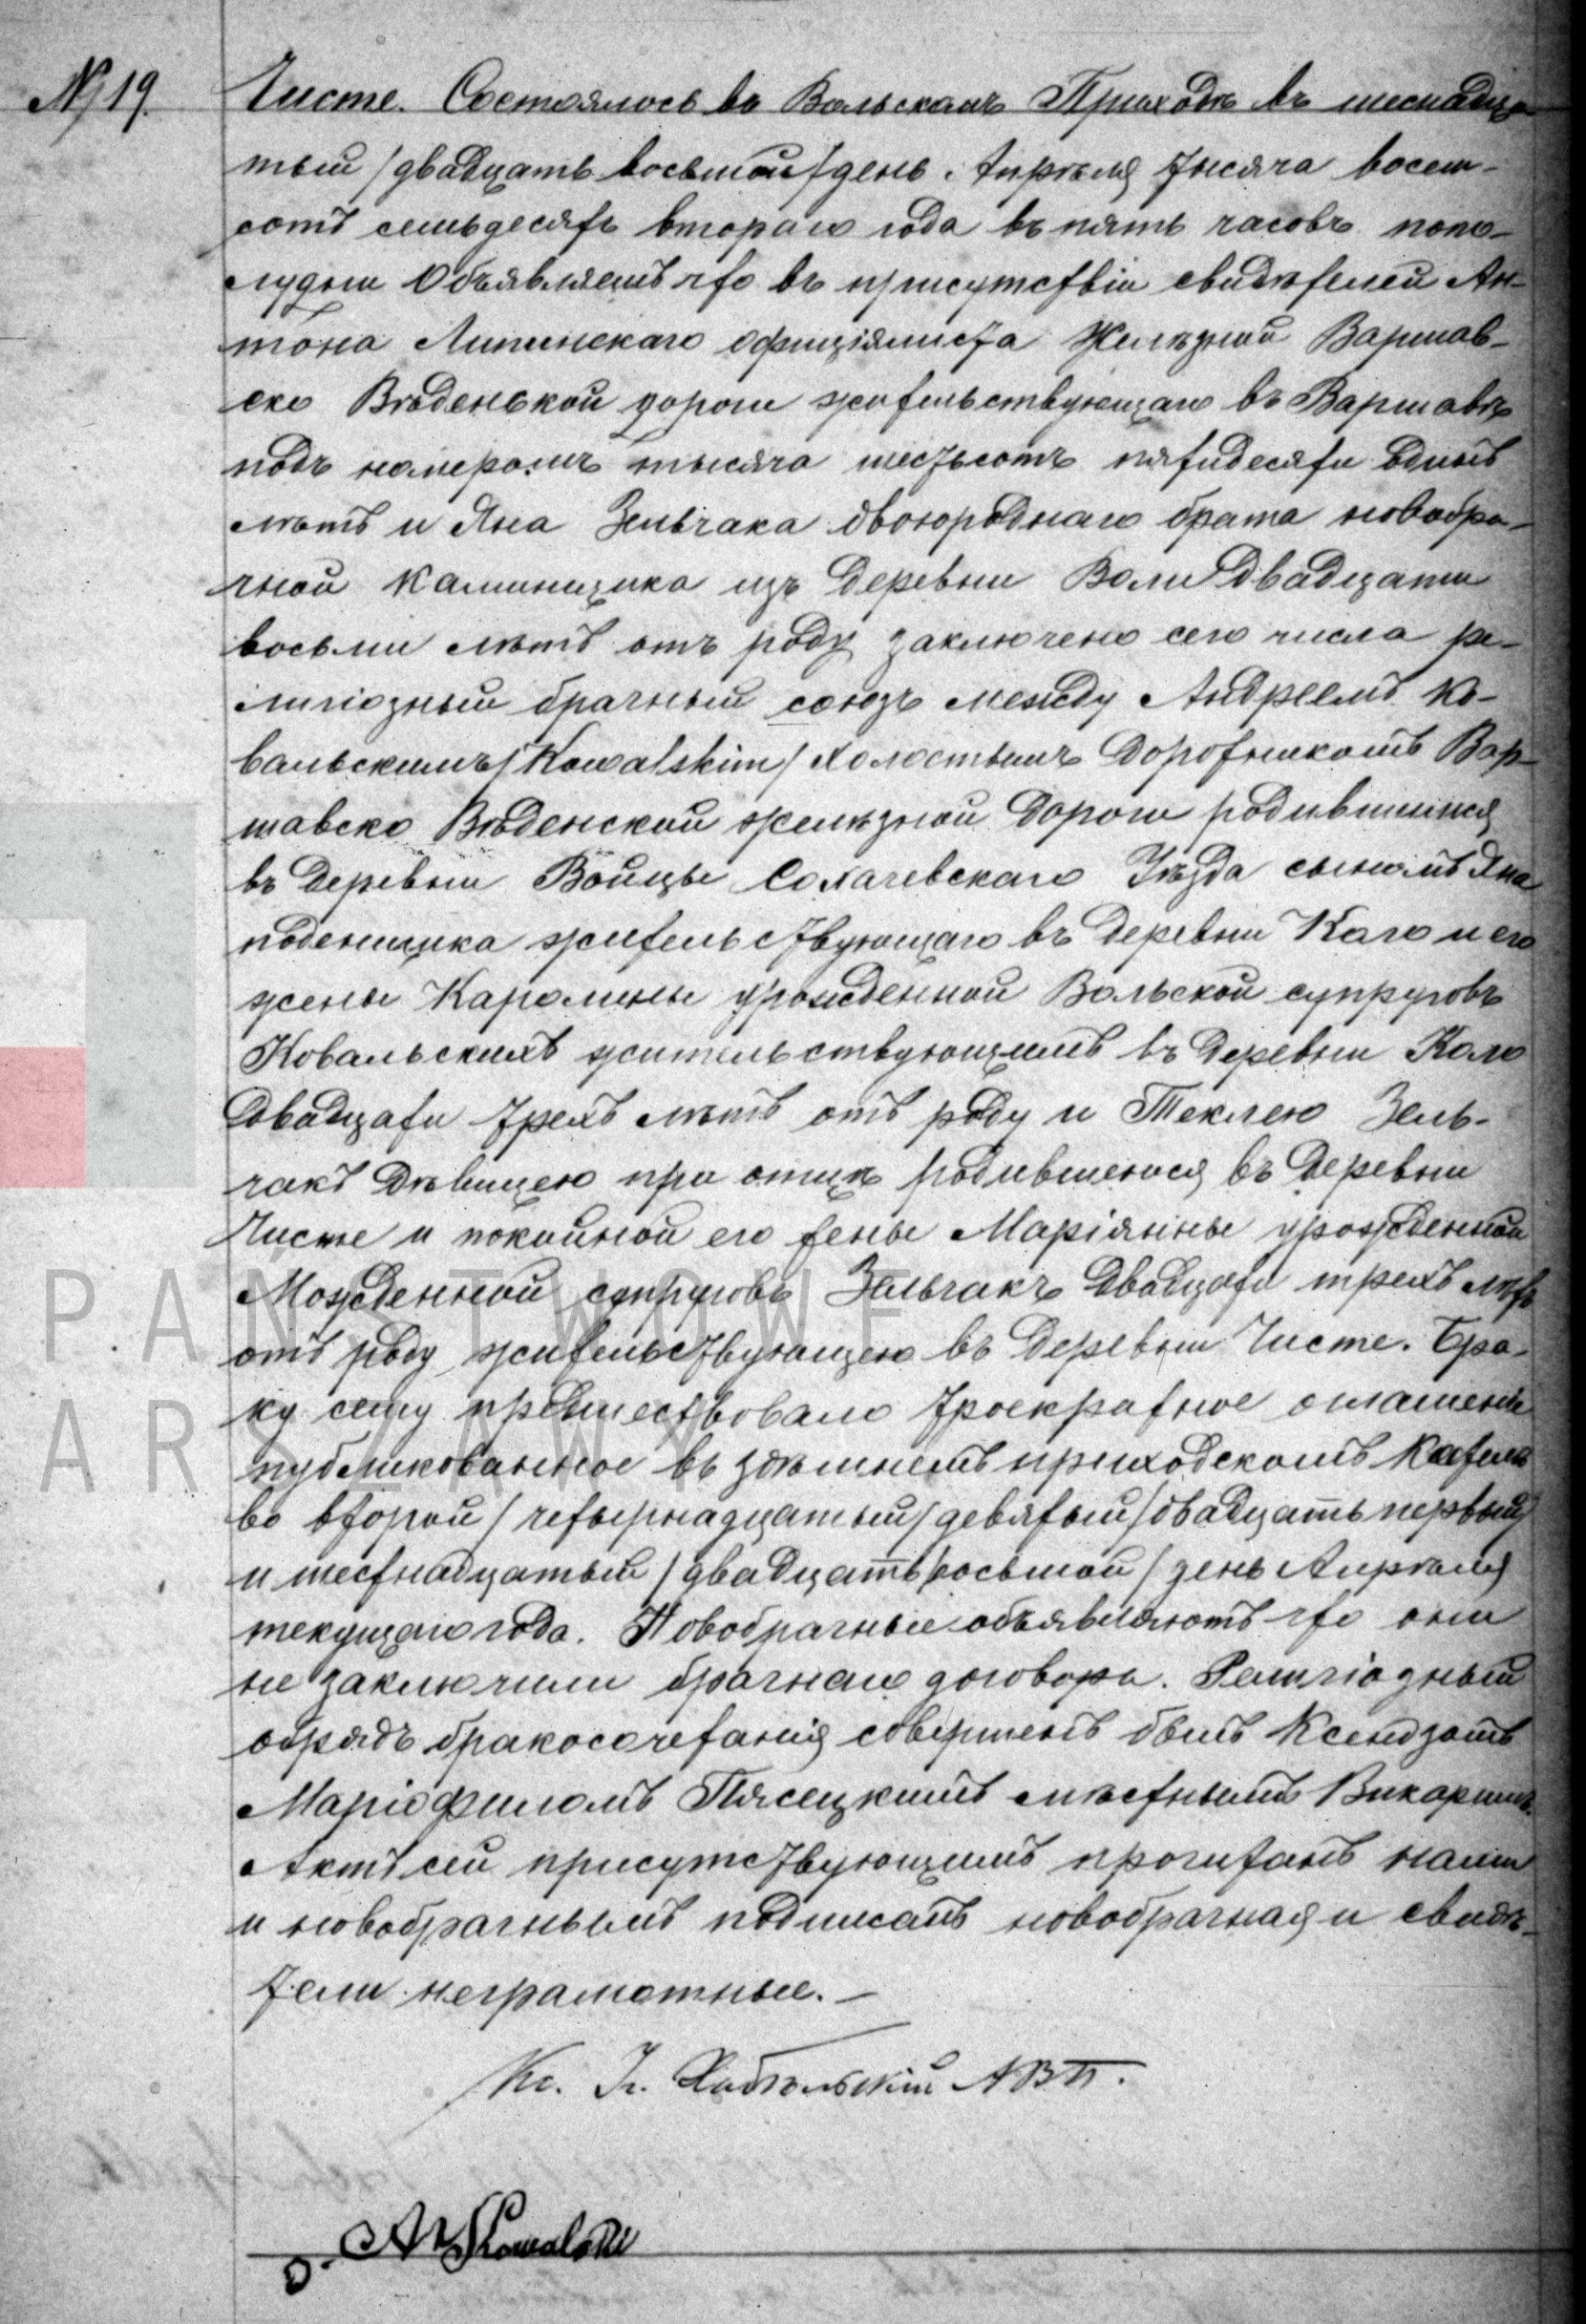 № 19.
Чисте. Состоялось въ Вольскомъ Приходѣ въ шеснадца-
тый /двадцать восьмой/ день Апрѣля тысяча восем-
сотъ семьдесятъ втораго года въ пять часовъ попо-
лудни Объявляемъ что въ присутствіи свидѣтелей Ан-
тона Липинскаго офиціялиста Желѣзной Варшав-
ско Вѣденькой дороги жительствующаго въ Варшавѣ
подъ номеромъ тысяча шестьсотъ пятидесяти однъ
лѣтъ и Яна Зельчака двоюроднаго брата новобра-
чной каминщика изъ деревни Воли двадцати
восьми лѣтъ отъ роду заключено сего числа ре-
лигіозный брачный союзъ между Андреемъ Ко-
вальскимъ /Kowalskim/ холостымъ Дорожникомъ Вар-
шавско Вѣденской желѣзной дороги родившимся
въ деревни Войцы Сохачевскаго Уѣзда сыномъ Яна
поденщика жительствующаго въ деревни Коло и его
жены Каролины урожденной Вольской супруговъ
Ковальскихъ жительствующимъ въ деревни Коло
двадцати трехъ лѣтъ отъ роду и Теклею Зель-
чакъ дѣвицею при отцѣ родившеюся въ деревни
Чисте и покойной его жены Маріянны урожденной
Можденной супруговъ Зельчакъ двадцати трехъ лѣтъ
отъ роду жительствующею въ деревни Чисте. Бра-
ку сему предшествовало троекратное оглашеніе
публикованное въ здѣшнемъ приходскомъ Костелѣ
во второй /четырнадцатый/ девятый /двадцать первый/
и шестнадцатый /двадцать восьмой/ день Апрѣля
текущаго года. Новобрачные объявляютъ что они
не заключили брачнаго договора. Религіозный
обрядъ бракосочетанія совершенъ былъ Ксендзомъ
Маріофиломъ Пясецкимъ мѣстнымъ Викаримъ.
Актъ сей присутствующимъ прочитанъ нами
и новобрачнымъ подписанъ новобрачная и свидѣ-
тели неграмотные. –
Кс.
Kowalski
PAŃSTWOWE
ARSZAWY